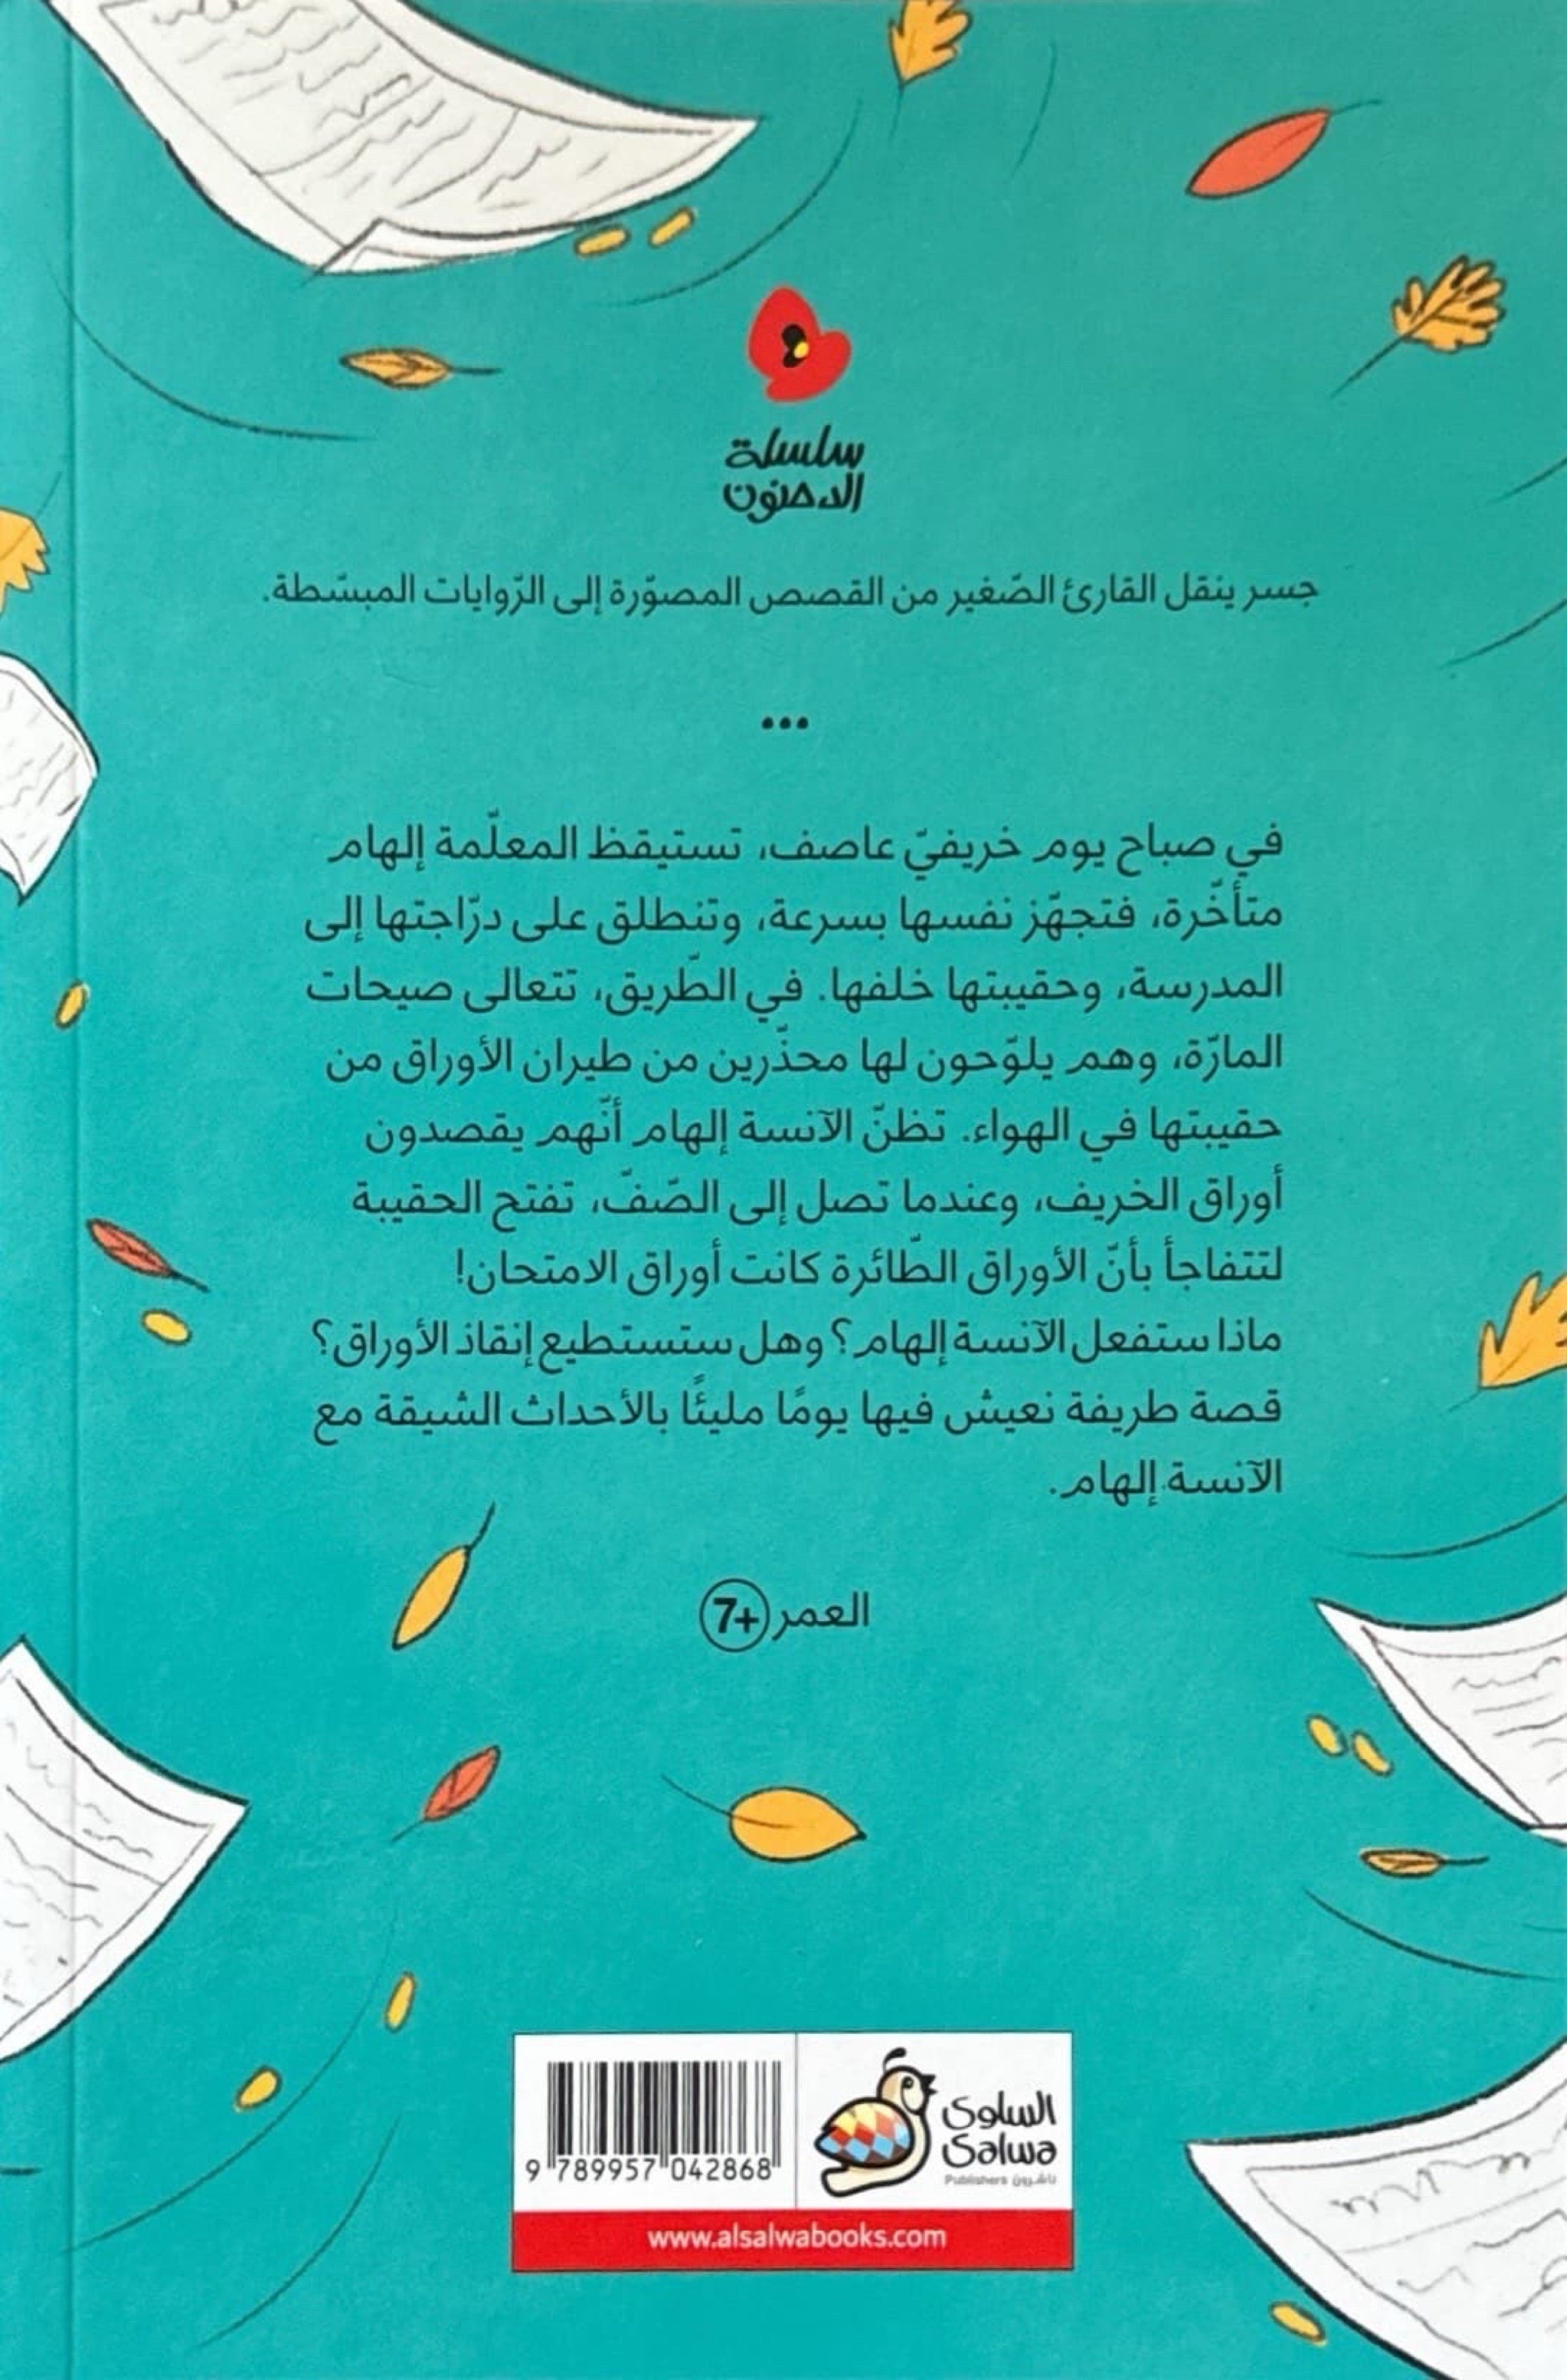 سلسلة
الدحنون
جسر ينقل القارئ الصّغير من القصص المصوّرة إلى الرّوايات المبسّطة.
...
في صباح يوم خريفيّ عاصف، تستيقظ المعلّمة إلهام
متأخّرة، فتجهّز نفسها بسرعة، وتنطلق على درّاجتها إلى
المدرسة، وحقيبتها خلفها. في الطّريق، تتعالى صيحات
المارّة، وهم يلوّحون لها محذّرين من طيران الأوراق من
حقيبتها في الهواء. تظنّ الآنسة إلهام أنّهم يقصدون
أوراق الخريف، وعندما تصل إلى الصّفّ، تفتح الحقيبة
لتتفاجأ بأنّ الأوراق الطّائرة كانت أوراق الامتحان!
ماذا ستفعل الآنسة إلهام؟ وهل ستستطيع إنقاذ الأوراق؟
قصة طريفة نعيش فيها يومًا مليئًا بالأحداث الشيقة مع
الآنسة إلهام.
العمر +7
السلوى
Salwa
Publishers ناشرون
9 789957 042868
www.alsalwabooks.com